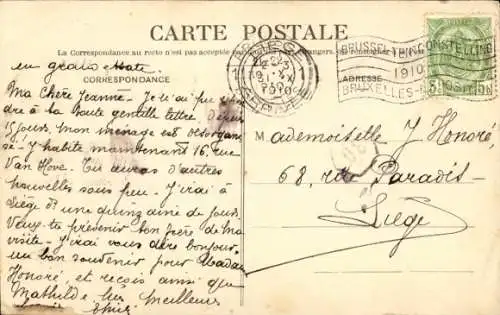 CARTE POSTALE
La Correspondance au recto n'est pas acceptée par
en grand hâte
CORRESPONDANCE
ADRESSE
BRUSSEL TENTOONSTELLING
1910
BRUXELLES-
LIEGE
1910
Ma Chère Jeanne. Je n'ai pu répondre
dre à ta toute gentille lettre, depuis
15 jours, mon ménage est désorgani
sé. J'y habite maintenant 16, rue
Van Hove. Tu auras d'autres
nouvelles sous peu. J'irai à
Liège d'ici une quinzaine de jours.
Veux-tu prévenir bon père de ma
visite. J'irai vous dire bonjour.
un bon souvenir pour Madame
Honoré, et reçois ainsi que
Mathilde les meilleurs
Mademoiselle J Honoré,
68, rue Paradis-
Liège